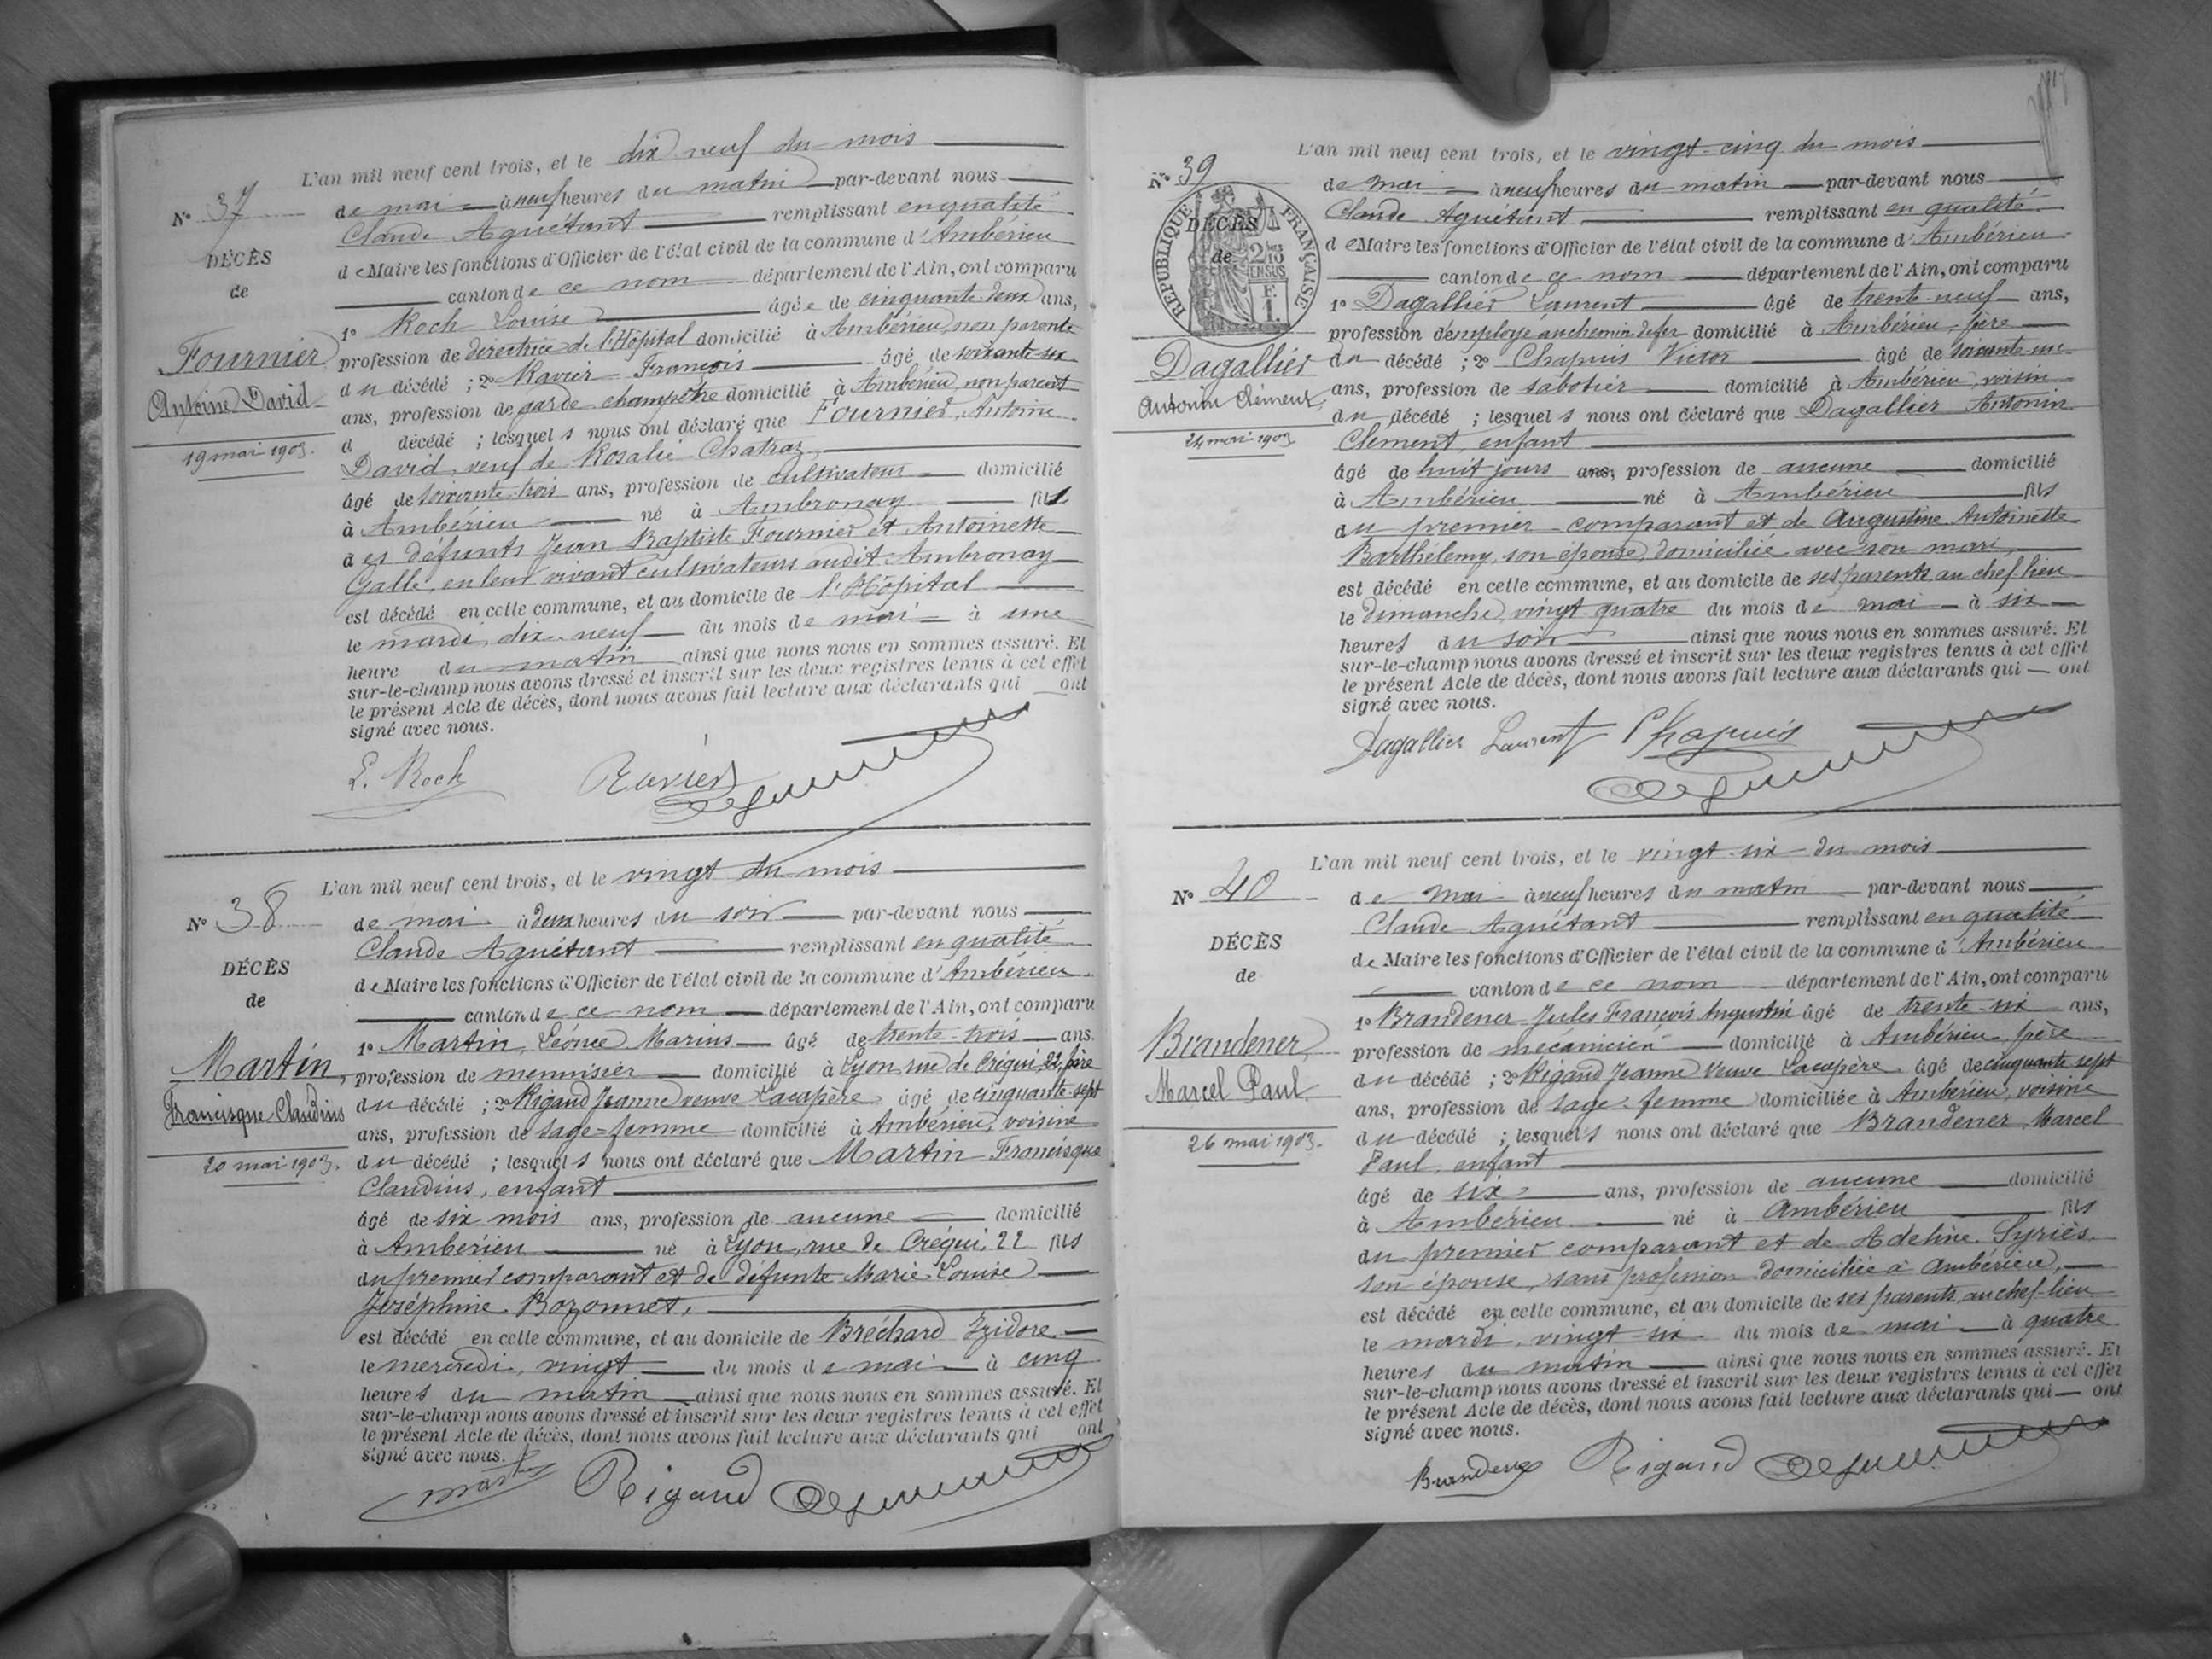 L'an mil neuf cent trois, et le dix neuf du mois
N° 37
de mai à neuf heures du matin par-devant nous
Claude Aguétant remplissant en qualité
DÉCÈS
de Maire les fonctions d'Officier de l'état civil de la commune d'Ambérieu
de
canton de ce nom département de l'Ain, ont comparu
1° Roch Louise âgée de cinquante-deux ans,
Fournier
profession de directrice de l'Hôpital domicilié à Ambérieu, non parente
Antoine David
du décédé ; 2° Ravier François âgé de soixante-six
ans, profession de garde champêtre domicilié à Ambérieu, non parent
19 mai 1903.
d décédé ; lesquels nous ont déclaré que Fournier, Antoine
David, veuf de Rosalie Chatraz,
âgé de soixante-trois ans, profession de cultivateur domicilié
à Ambérieu né à Ambronay fils
des défunts Jean Baptiste Fournier et Antoinette
Galle, en leur vivant cultivateurs audit Ambronay
est décédé en cette commune, et au domicile de l'Hôpital
le mardi, dix-neuf du mois de mai à une
heure du matin ainsi que nous nous en sommes assuré. Et
sur-le-champ nous avons dressé et inscrit sur les deux registres tenus à cet effet
le présent Acte de décès, dont nous avons fait lecture aux déclarants qui ont
signé avec nous.
L. Roch Ravier
L'an mil neuf cent trois, et le vingt du mois
N° 38
de mai à deux heures du soir par-devant nous
Claude Aguétant remplissant en qualité
DÉCÈS
de Maire les fonctions d'Officier de l'état civil de la commune d'Ambérieu
de
canton de ce nom département de l'Ain, ont comparu
1° Martin, Léonce Marius âgé de trente-trois ans.
Martin,
profession de menuisier domicilié à Lyon, rue de Créqui 22, père
Francisque Claudius
du décédé ; 2° Rigaud Jeanne veuve Lacupère âgé de cinquante-sept
ans, profession de sage=femme domicilié à Ambérieu, voisine
20 mai 1903.
du décédé ; lesquels nous ont déclaré que Martin Francisque
Claudius, enfant
âgé de six mois ans, profession de aucune domicilié
à Ambérieu né à Lyon, rue de Créqui, 22 fils
du premier comparant et de défunte Marie Louise
Joséphine Bozonnet,
est décédé en cette commune, et au domicile de Bréchard Izidore
le mercredi, vingt du mois de mai à cinq
heures du matin ainsi que nous nous en sommes assuré. Et
sur-le-champ nous avons dressé et inscrit sur les deux registres tenus à cet effet
le présent Acte de décès, dont nous avons fait lecture aux déclarants qui ont
signé avec nous.
Martin Rigaud
L'an mil neuf cent trois, et le vingt-cinq du mois
N° 39
de mai à neuf heures du matin par-devant nous
RÉPUBLIQUE FRANÇAISE
2/10 EN SUS
F. 1.
Claude Aguétant remplissant en qualité
DÉCÈS
de Maire les fonctions d'Officier de l'état civil de la commune d'Ambérieu
de
canton de ce nom département de l'Ain, ont comparu
1° Dagallier Laurent âgé de trente-neuf ans,
profession d'employé au chemin de fer domicilié à Ambérieu, père
Dagallier
du décédé ; 2° Chapuis Victor âgé de soixante-un
Antonin Clément,
ans, profession de sabotier domicilié à Ambérieu, voisin
du décédé ; lesquels nous ont déclaré que Dagallier Antonin
24 mai 1903.
Clément, enfant
âgé de huit jours ans, profession de aucune domicilié
à Ambérieu né à Ambérieu fils
du premier comparant et de Augustine Antoinette
Barthélemy, son épouse, domiciliée avec son mari,
est décédé en cette commune, et au domicile de ses parents au chef lieu
le dimanche, vingt-quatre du mois de mai à six
heures du soir ainsi que nous nous en sommes assuré. Et
sur-le-champ nous avons dressé et inscrit sur les deux registres tenus à cet effet
le présent Acte de décès, dont nous avons fait lecture aux déclarants qui ont
signé avec nous.
Dagallier Laurent Chapuis
L'an mil neuf cent trois, et le vingt-six du mois
N° 40
de mai à neuf heures du matin par-devant nous
Claude Aguétant remplissant en qualité
DÉCÈS
de Maire les fonctions d'Officier de l'état civil de la commune d'Ambérieu
de
canton de ce nom département de l'Ain, ont comparu
1° Brandener Jules François Augustin âgé de trente-six ans,
Brandener,
profession de mécanicien domicilié à Ambérieu, père
Marcel Paul
du décédé ; 2° Rigaud Jeanne veuve Lacupère âgé de cinquante sept
ans, profession de sage-femme domiciliée à Ambérieu, voisine
26 mai 1903.
du décédé ; lesquels nous ont déclaré que Brandener Marcel
Paul, enfant
âgé de six ans, profession de aucune domicilié
à Ambérieu né à Ambérieu fils
du premier comparant et de Adeline Syriès
son épouse, sans profession domiciliée à Ambérieu,
est décédé en cette commune, et au domicile de ses parents, au chef-lieu
le mardi, vingt-six du mois de mai à quatre
heures du matin ainsi que nous nous en sommes assuré. Et
sur-le-champ nous avons dressé et inscrit sur les deux registres tenus à cet effet
le présent Acte de décès, dont nous avons fait lecture aux déclarants qui ont
signé avec nous.
Brandener Rigaud